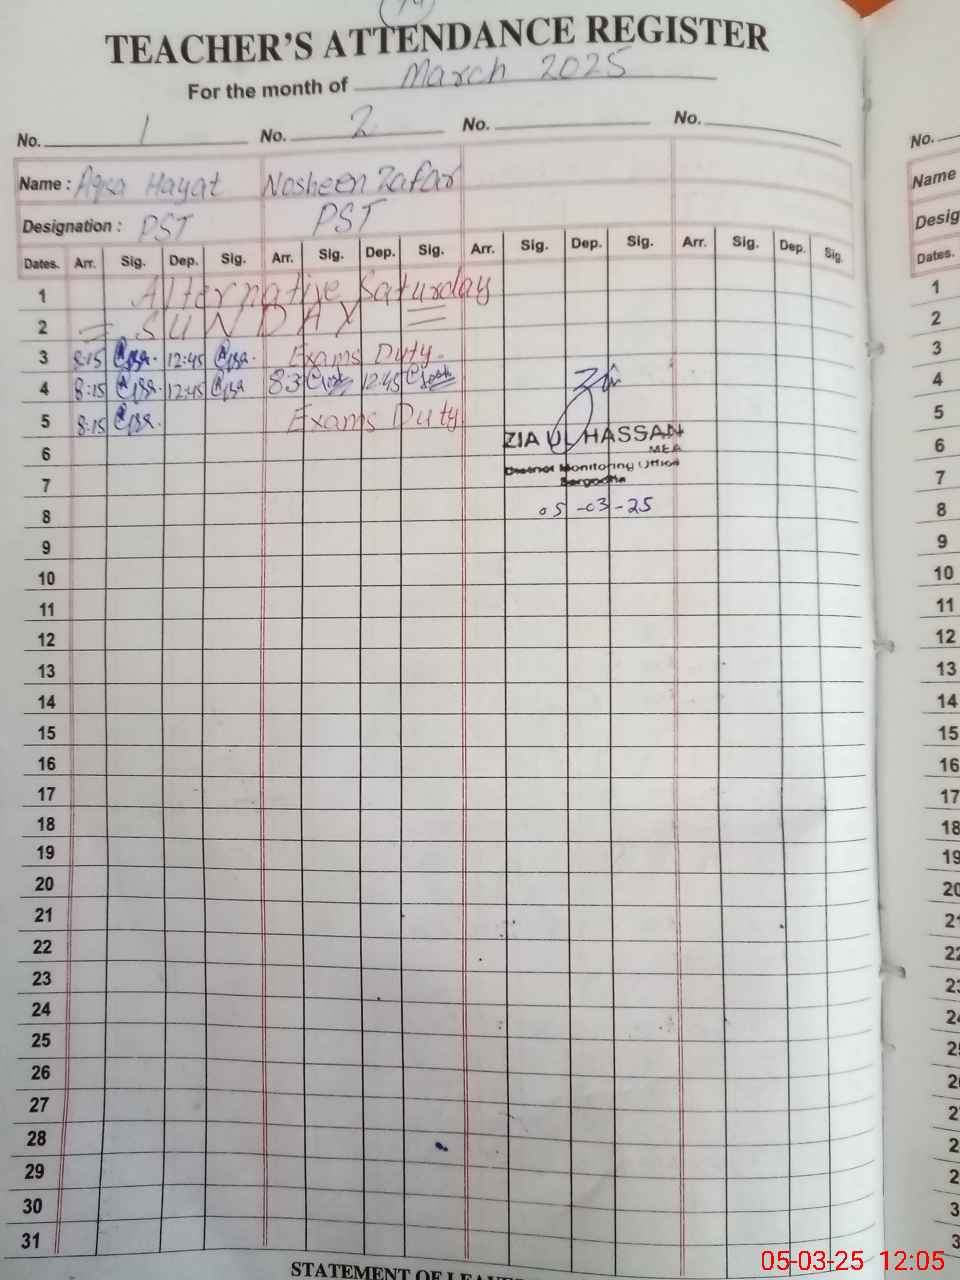 (19)
TEACHER'S ATTENDANCE REGISTER
For the month of March 2025
No. 1 No. 2 No. No.
Name : Aqsa Hayat Nosheen Zafar
Designation : PST PST
Dates. Arr. Sig. Dep. Sig. Arr. Sig. Dep. Sig. Arr. Sig. Dep. Sig. Arr. Sig. Dep. Sig.
1 Alternative Saturday
2 SUNDAY
3 8:15 Aqsa 12:45 Aqsa Exams Duty
4 8:15 Aqsa 12:45 Aqsa 83 12:45
5 8:15 Aqsa Exams Duty
6
7
8
9
10
11
12
13
14
15
16
17
18
19
20
21
22
23
24
25
26
27
28
29
30
31
ZIA UL HASSAN
MEA
District Monitoring Office
Sargodha
05-03-25
STATEMENT OF
No.
Name
Dates.
1
2
3
4
5
6
7
8
9
10
11
12
13
14
15
16
17
18
19
20
05-03-25 12:05